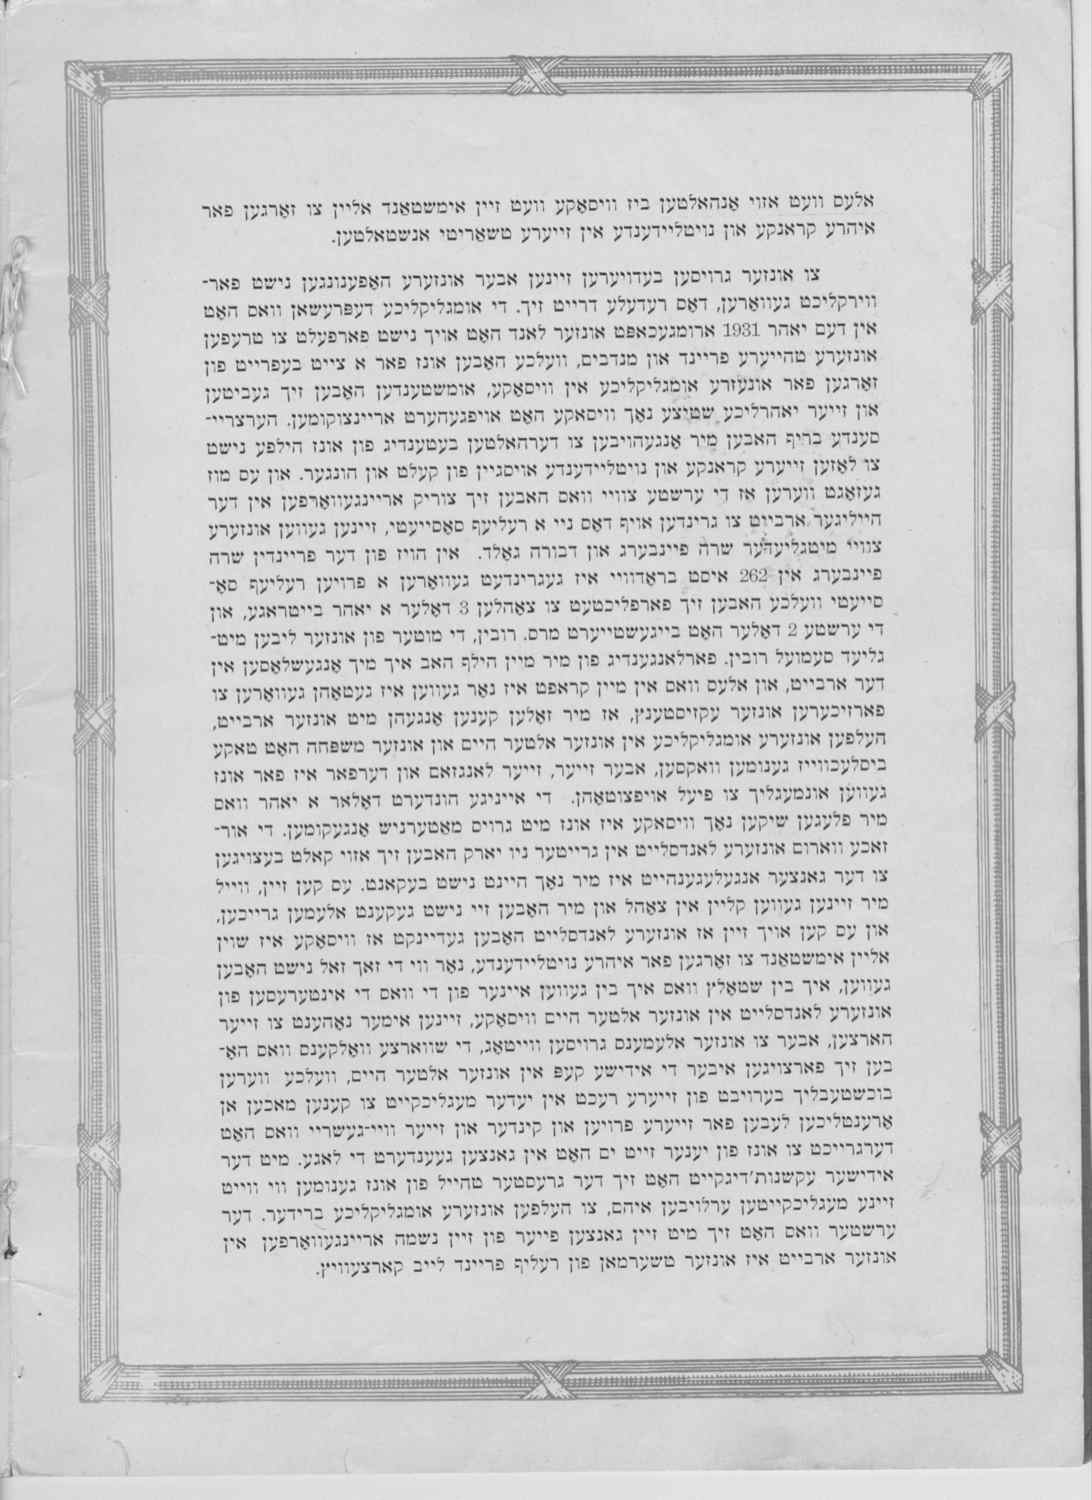 אלעס וועט אזוי אָנהאלטען ביז וויסאָקע וועט זיין אימשטאַנד אליין צו זאָרגען פאר
איהרע קראנקע און נויטליידענדע אין זייערע טשאַריטי אנשטאלטען.
צו אונזער גרויסען בעדויערען זיינען אבער אונזערע האָפענונגען נישט פאר־
ווירקליכט געוואָרען, דאָס רעדעלע דרייט זיך. די אומגליקליכע דעפּרעשאן וואס האָט
אין דעם יאהר 1931 ארומגעכאפּט אונזער לאנד האָט אויך נישט פארפעלט צו טרעפען
אונזערע טהייערע פריינד און מנדבים, וועלכע האָבען אונז פאר א צייט בעפרייט פון
זאָרגען פאר אונעזרע אומגליקליכע אין וויסאָקע, אומשטענדען האָבען זיך געביטען
און זייער יאהרליכע שטיצע נאָך וויסאקע האָט אויפגעהערט אריינצוקומען. הערצריי־
סענדע בריף האבען מיר אָנגעהויבען צו דערהאלטען בעטענדיג פון אונז הילפע נישט
צו לאָזען זייערע קראנקע און נויטליידענדע אויסגיין פון קעלט און הונגער. און עס מוז
געזאָגט ווערען אז די ערשטע צוויי וואס האבען זיך צוריק אריינגעוואָרפען אין דער
הייליגער ארביוט צו גרינדען אויף דאָס ניי א רעליעף סאָסייעטי, זיינען געווען אונזערע
צוויי מיטגליעדער שרה פיינבערג און דבורה גאָלד. אין הויז פון דער פריינדין שרה
פיינבערג אין 262 איסט בראָדוויי איז געגרינדעט געוואָרען א פרויען רעליעף סאָ־
סייעטי וועלכע האבען זיך פארפליכטעט צו צאָהלען 3 דאָלער א יאהר בייטראגע, און
די ערשטע 2 דאָלער האָט בייגעשטייערט מרס. רובין, די מוטער פון אונזער ליבען מיט־
גליעד סעמועל רובין. פארלאנגענדיג פון מיר מיין הילף האב איך מיך אָנגעשלאָסען אין
דער ארבייט, און אלעס וואס אין מיין קראפט איז נאָר געווען איז געטאָהן געוואָרען צו
פארזיכערען אונזער עקזיסטענץ, אז מיר זאָלען קענען אָנגעהן מיט אונזער ארבייט,
העלפען אונזערע אומגליקליכע אין אונזער אלטער היים און אונזער משפּחה האָט טאקע
ביסלעכווייז גענומען וואקסען, אבער זייער, זייער לאנגזאם און דערפאר איז פאר אונז
געווען אונמעגליך צו פיעל אויפצוטאָהן. די אייניגע הונדערט דאָלאר א יאהר וואס
מיר פלעגען שיקען נאָך וויסאקע איז אונז מיט גרויס מאַטערניש אָנגעקומען. די אור־
זאכע ווארום אונזערע לאנדסלייט אין גרייטער ניו יארק האבען זיך אזוי קאלט בעצויגען
צו דער גאנצער אנגעלעגענהייט איז מיר נאָך היינט נישט בעקאנט. עס קען זיין, ווייל
מיר זיינען געווען קליין אין צאָהל און מיר האָבען זיי נישט געקענט אלעמען גרייכען,
און עס קען אויך זיין אז אונזערע לאנדסלייט האָבען געדיינקט אז וויסאָקע איז שוין
אליין אימשטאַנד צו זאָרגען פאר איהרע נויטליידענדע, נאָר ווי די זאך זאל נישט האָבען
געווען, איך בין שטאָלץ וואס איך בין געווען איינער פון די וואס די אינטערעסען פון
אונזערע לאנדסלייט אין אונזער אלטער היים וויסאָקע, זיינען אימער נאָהענט צו זייער
הארצען, אבער צו אונזער אלעמענס גרויסען ווייטאָג, די שווארצע וואָלקענס וואס האָ־
בען זיך פארצויגען איבער די אידישע קעפ אין אונזער אלטער היים, וועלכע ווערען
בוכשטעבליך בערויבט פון זייערע רעכט אין יעדער מעגליכקייט צו קענען מאכען אן
אָרענטליכען לעבען פאר זייערע פרויען און קינדער און זייער וויי־געשריי וואס האָט
דערגרייכט צו אונז פון יענער זייט ים האָט אין גאנצען געענדערט די לאגע. מיט דער
אידישער עקשנות'דיגקייט האָט זיך דער גרעסטער טהייל פון אונז גענומען ווי ווייט
זיינע מעגליכקייטען ערלויבען איהם, צו העלפען אונזערע אומגליקליכע ברידער. דער
ערשטער וואס האָט זיך מיט זיין גאנצען פייער פון זיין נשמה אריינגעוואָרפען אין
אונזער ארבייט איז אונזער טשערמאן פון רעליף פריינד לייב קארצעוויץ.